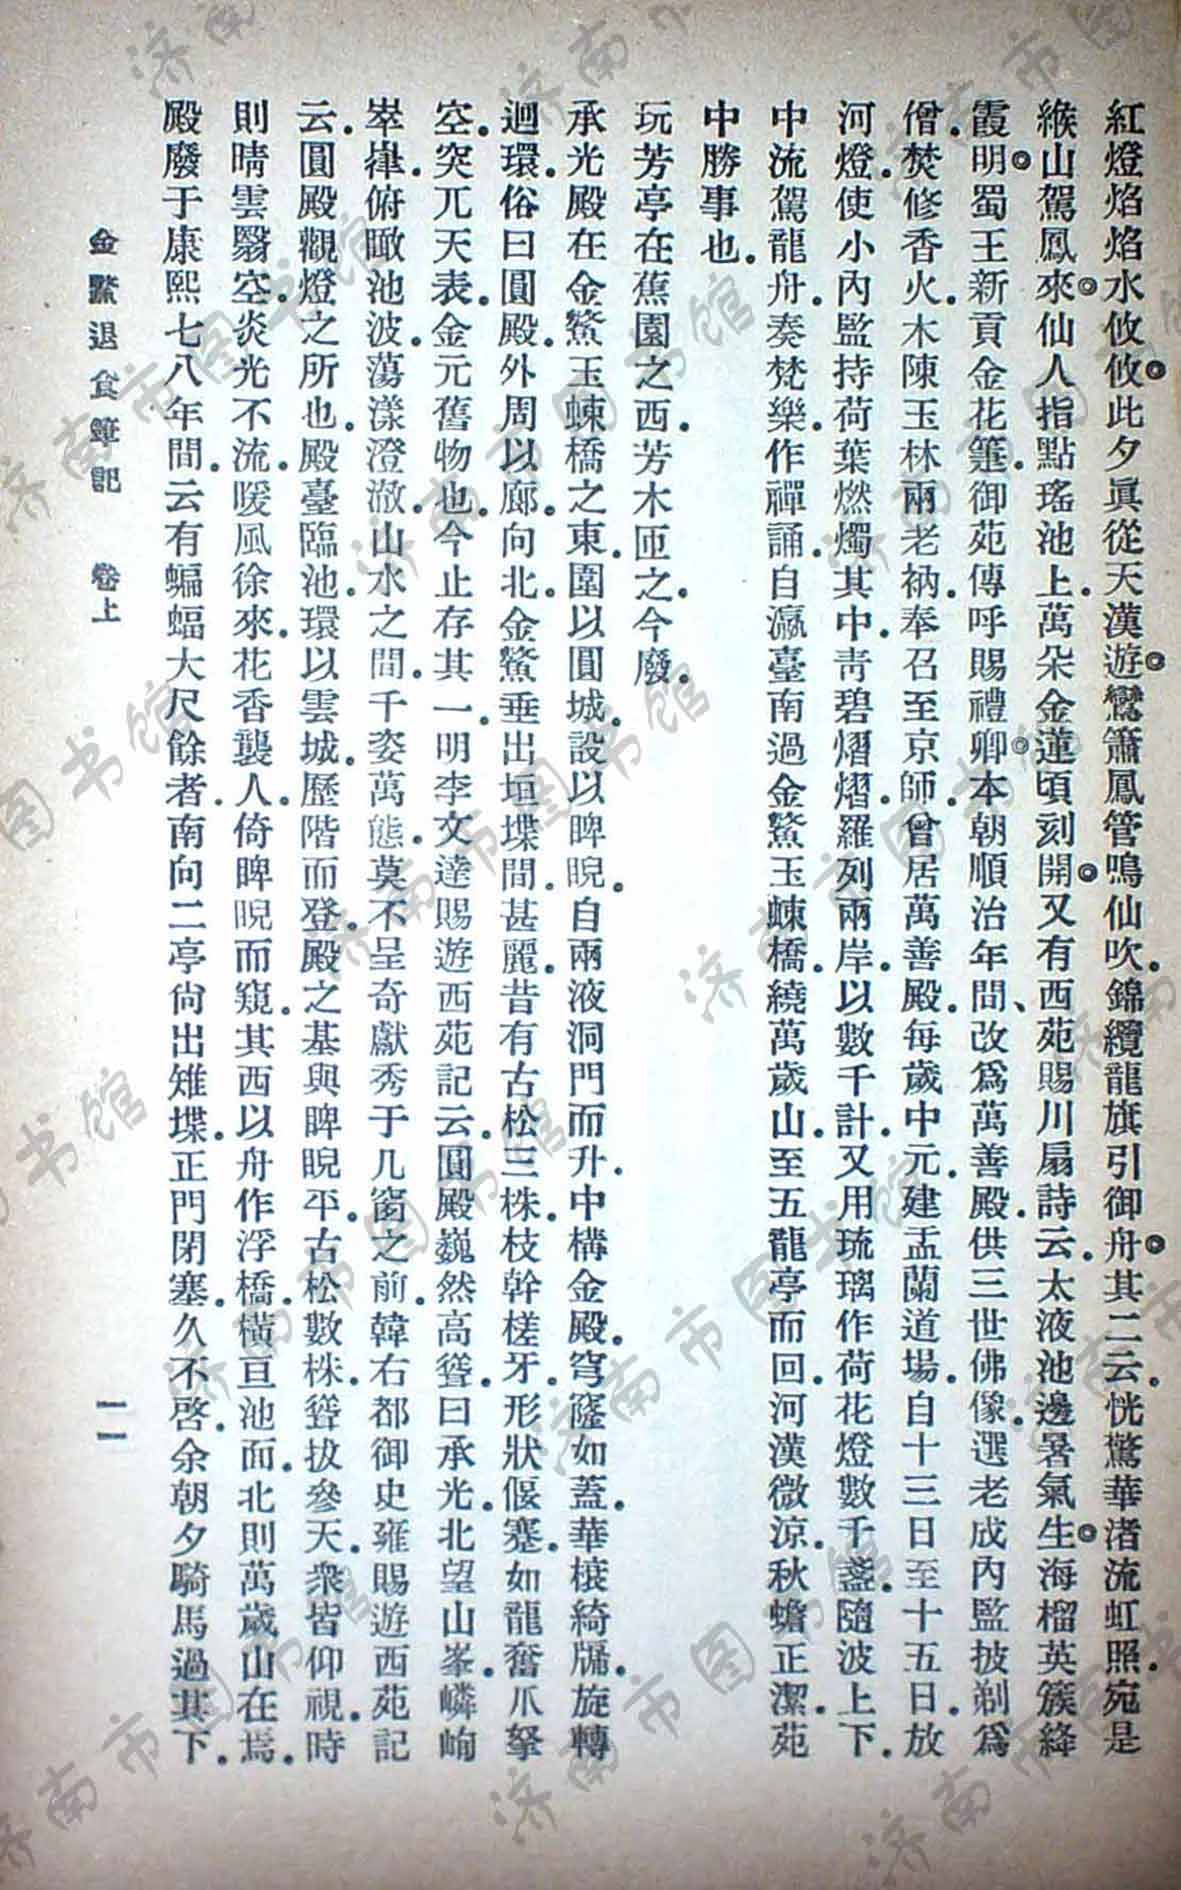 紅燈焰焰水攸攸。此夕眞從天漢遊。鸞簫鳳管鳴仙吹。錦纜龍旗引御舟。其二云。恍驚華渚流虹照。宛是
緱山駕鳳來。仙人指點瑤池上。萬朵金蓮頃刻開。又有西苑賜川扇詩云。太液池邊暑氣生。海榴英簇絳
霞明。蜀王新貢金花箑。御苑傳呼賜禮卿。本朝順治年間、改爲萬善殿。供三世佛像。選老成內監披剃爲
僧。焚修香火。木陳玉林兩老衲。奉召至京師。曾居萬善殿。每歲中元。建盂蘭道場。自十三日至十五日。放
河燈。使小內監持荷葉燃燭其中。靑碧熠熠。羅列兩岸。以數千計。又用琉璃作荷花燈數千盞。隨波上下。
中流駕龍舟。奏梵樂。作禪誦。自瀛臺南過金鰲玉蝀橋。繞萬歲山。至五龍亭而回。河漢微涼。秋蟾正潔。苑
中勝事也。
玩芳亭在蕉園之西。芳木匝之。今廢。
承光殿在金鰲玉蝀橋之東。圍以圓城。設以睥睨。自兩液洞門而升。中構金殿。穹窿如蓋。華榱綺牖。旋轉
迴環。俗曰圓殿。外周以廊。向北。金鰲垂出垣堞間。甚麗。昔有古松三株。枝幹槎牙。形狀偃蹇。如龍奮爪拏
空。突兀天表。金元舊物也。今止存其一。明李文達賜遊西苑記云。圓殿巍然高聳。曰承光。北望山峯。嶙峋
崒嵂。俯瞰池波。蕩漾澄澈。山水之間。千姿萬態。莫不呈奇獻秀于几窗之前。韓右都御史雍賜遊西苑記
云。圓殿觀燈之所也。殿臺臨池。環以雲城。歷階而登。殿之基與睥睨平。古松數株。聳拔參天。衆皆仰視。時
則晴雲翳空。炎光不流。暖風徐來。花香襲人。倚睥睨而窺。其西以舟作浮橋。橫亘池面。北則萬歲山在焉。
殿廢于康熙七八年間。云有蝙蝠大尺餘者。南向二亭尙出雉堞。正門閉塞。久不啓。余朝夕騎馬過其下。
金鰲退食筆記 卷上 一一